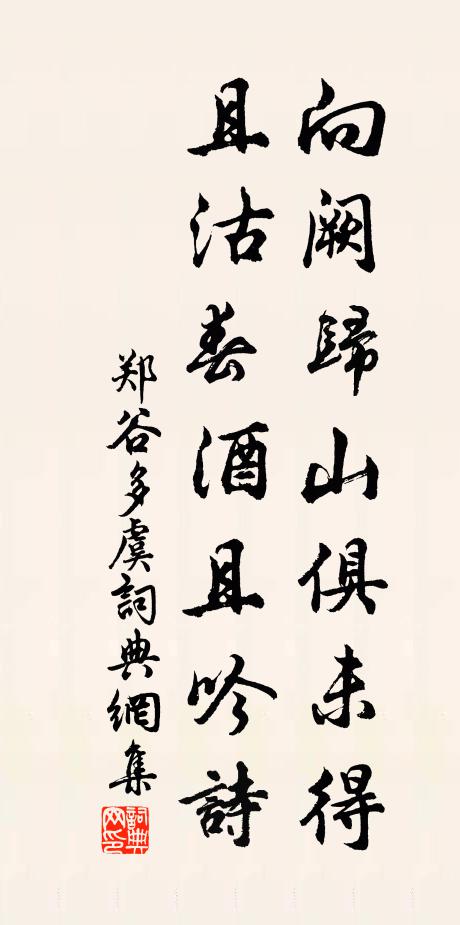 向阙歸山俱未得
且沽春酒且吟詩
郑谷多虞詞典網集
詞典网印